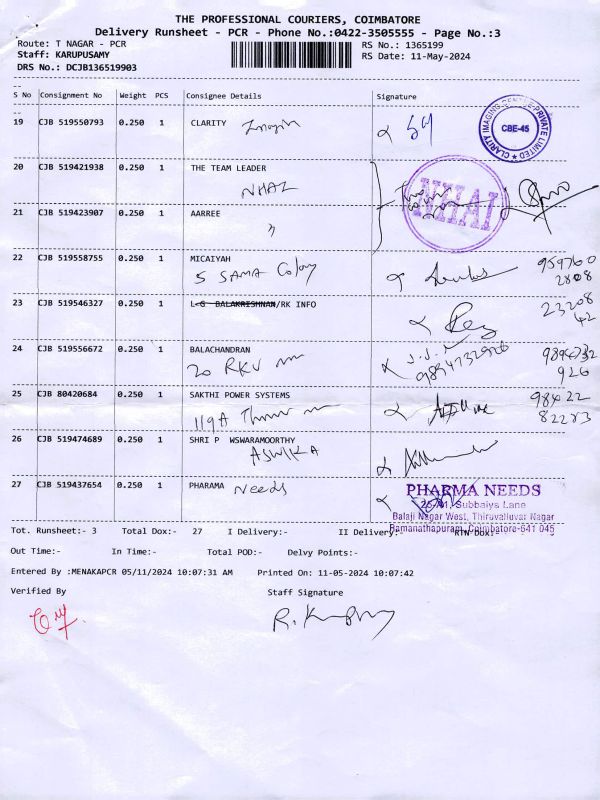 THE PROFESSIONAL COURIERS, COIMBATORE
Delivery Runsheet - PCR - Phone No.:0422-3505555 - Page No.:3
Route: T NAGAR - PCR
RS No.: 1365199
Staff: KARUPUSAMY
RS Date: 11-May-2024
DRS No.: DCJB136519903
S No Consignment No Weight PCS Consignee Details Signature
19 CJB 519550793 0.250 1 CLARITY
CLARITY IMAGING CENTRE PRIVATE LIMITED
CBE-45
20 CJB 519421938 0.250 1 THE TEAM LEADER
NHAI
NHAI
21 CJB 519423907 0.250 1 AARREE
22 CJB 519558755 0.250 1 MICAIYAH
5 SAMA Colony
959760
2808
23 CJB 519546327 0.250 1 L G BALAKRISHNAN/RK INFO
23208
42
24 CJB 519556672 0.250 1 BALACHANDRAN
20 RKV
9894732926
9894732
926
25 CJB 80420684 0.250 1 SAKTHI POWER SYSTEMS
119A
98422
82283
26 CJB 519474689 0.250 1 SHRI P WSWARAMOORTHY
ASWIKA
27 CJB 519437654 0.250 1 PHARAMA Needs
PHARMA NEEDS
Subbaiys Lane
Balaji Nagar West, Thiruvalluvar Nagar
Ramanathapuram, Coimbatore-641 045
Tot. Runsheet:- 3 Total Dox:- 27 I Delivery:- II Delivery:- RTN Dox:-
Out Time:- In Time:- Total POD:- Delvy Points:-
Entered By :MENAKAPCR 05/11/2024 10:07:31 AM Printed On: 11-05-2024 10:07:42
Verified By Staff Signature